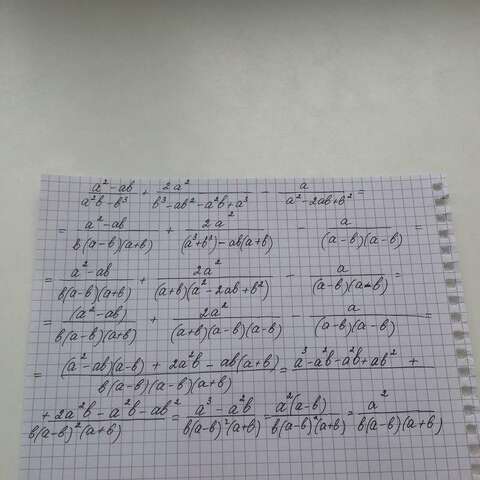 (a² - ab)/(a²b - b³) + 2a²/(b³ - ab² - a²b + a³) - a/(a² - 2ab + b²) =
= (a² - ab)/(b(a-b)(a+b)) + 2a²/((a³ + b³) - ab(a+b)) - a/((a-b)(a-b)) =
= (a² - ab)/(b(a-b)(a+b)) + 2a²/((a+b)(a² - 2ab + b²)) - a/((a-b)(a-b)) =
= (a² - ab)/(b(a-b)(a+b)) + 2a²/((a+b)(a-b)(a-b)) - a/((a-b)(a-b)) =
= ((a² - ab)(a-b) + 2a²b - ab(a+b))/(b(a-b)(a-b)(a+b)) = a³ - a²b - a²b + ab² +
+ 2a²b - a²b - ab²/(b(a-b)²(a+b)) = (a³ - a²b)/(b(a-b)²(a+b)) = a²(a-b)/(b(a-b)²(a+b)) = a²/(b(a-b)(a+b))